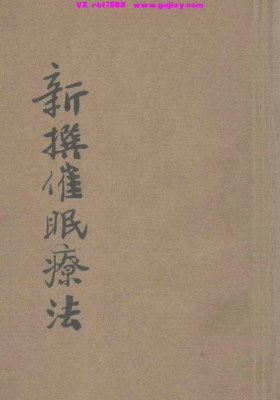 VX rbt7688 - www.gojizy.com
新撰催眠療法